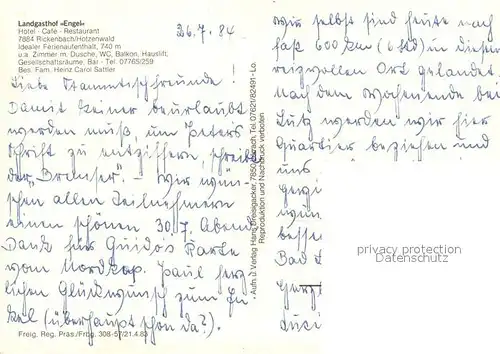 Landgasthof »Engel«
Hotel - Café - Restaurant
7884 Rickenbach/Hotzenwald
Idealer Ferienaufenthalt, 740 m
u.a. Zimmer m. Dusche, WC, Balkon, Hauslift,
Gesellschaftsräume, Bar - Tel. 07765/259
Bes. Fam. Heinz Carol Sattler
26.7.84
Liebe Stammtischfreunde!
Damit keiner beurlaubt
werden muß, um Peters
Schrift zu entziffern, schreibt
der „Brauser". – Wir wün-
schen allen Teilnehmern
einen schönen 30.7. Abend
Dank für Guido's Karte
vom Nordkap. Paul herz-
lichen Glückwunsch zum En-
kel (überhaupt schon da?).
Freig. Reg. Präs./Frbg. 308-57/21.4.83
Aufn. u. Verlag Hans Tel. 07621/82491 - Lö.
Reproduktion und Nachdruck verboten
Wir selbst sind heute nach
fast 600 km (6 Std) in diesem
reizvollen Ort gelandet.
Nach dem Wochenende bei
Lutz werden wir hier
Quartier beziehen und
uns
Bad
privacy protection
Datenschutz